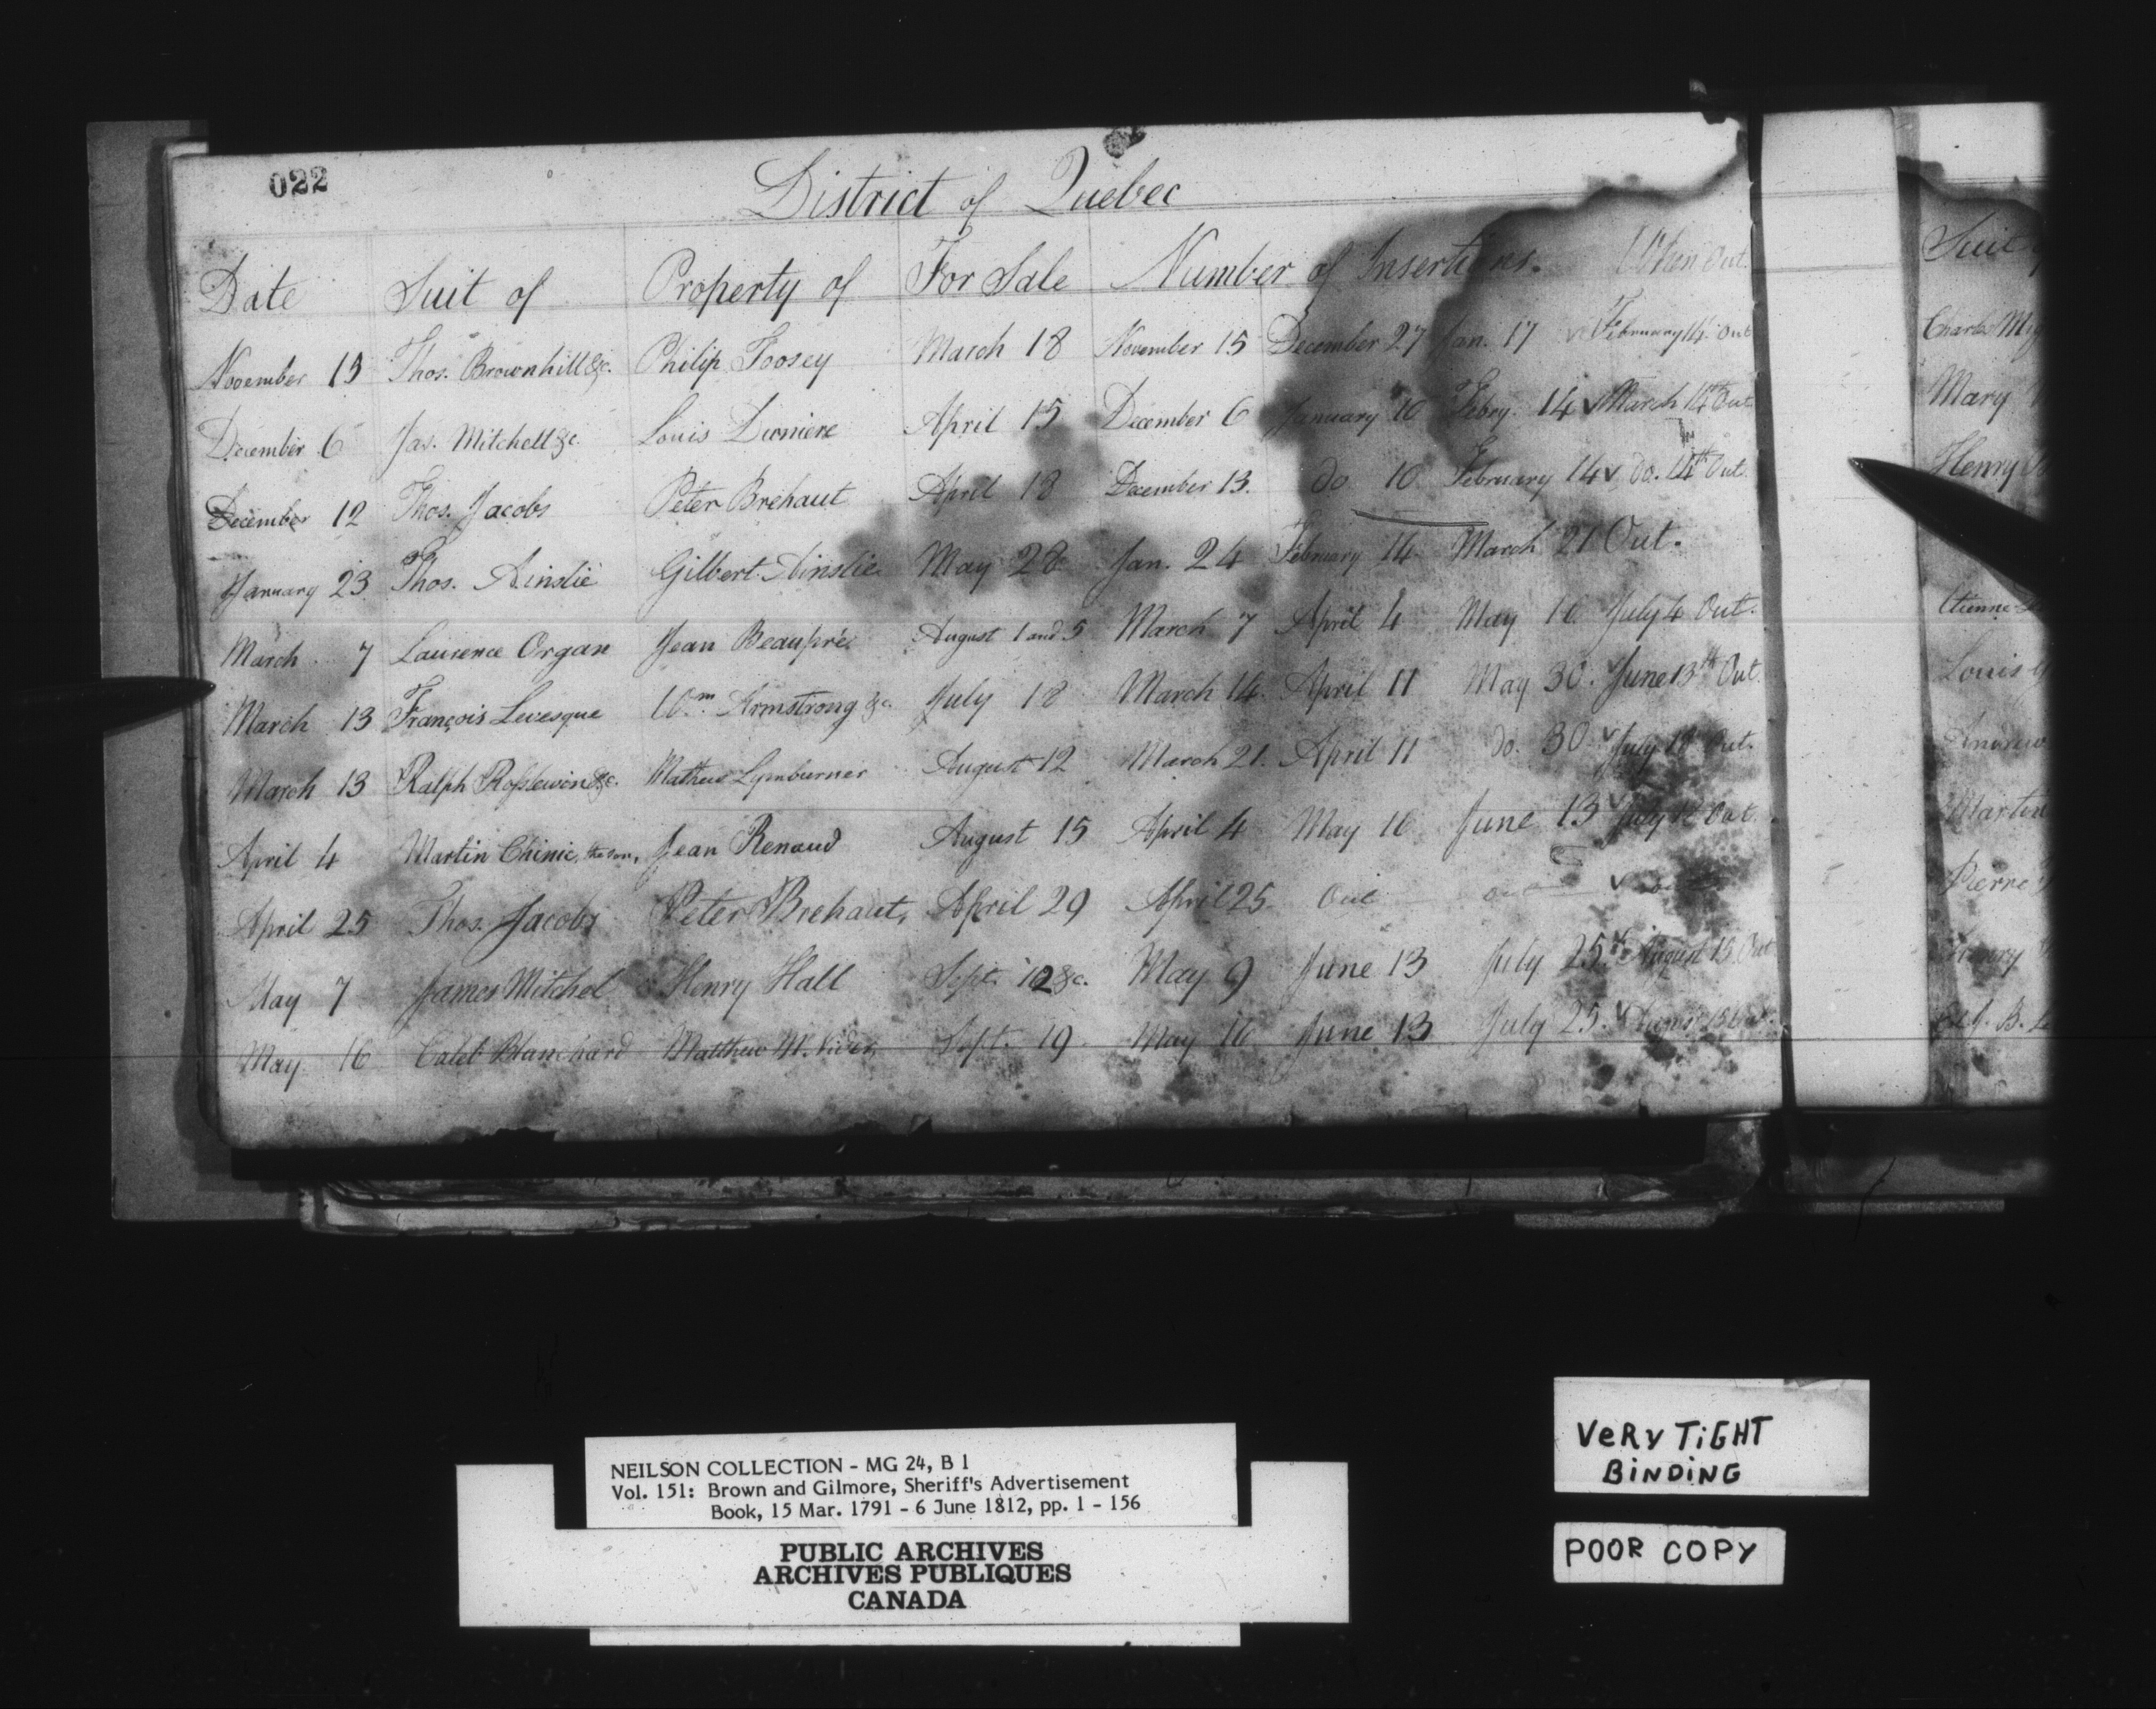 022
District of Quebec
Date Suit of Property of For Sale Number of Insertions. When Out.
November 13 Thos. Brownhill &c. Philip Toosey March 18 November 15 December 27 Jan. 17 February 14. Out
December 6 Jas. Mitchell &c. Louis Dunière April 15 December 6 January 10 Febry. 14 ✓ March 14th Out
December 12 Thos. Jacobs Peter Brehaut April 18 December 13. do 10 February 14 ✓ do. 14th Out.
January 23 Thos. Ainslie Gilbert Ainslie May 28 Jan. 24 February 14. March 21 Out.
March 7 Laurence Organ Jean Beaupré August 1 and 5 March 7 April 4 May 16 July 4 Out.
March 13 François Levesque Wm. Armstrong &c. July 18 March 14. April 11 May 30. ✓ June 13th Out.
March 13 Ralph &c. Mathew Lymburner August 12 March 21. April 11 do. 30 ✓ July 18 Out.
April 4 Martin Chinic, the son, Jean Renaud August 15 April 4 May 16 June 13 ✓ July 18 Out.
April 25 Thos. Jacobs Peter Brehaut, April 29 April 25 Out ✓
May 7 James Mitchel Henry Hall Sept. &c. May 9 June 13 July 25. August 15. Out
May 16 Caleb Blanchard Matthew Sept. 19 May 16 June 13 July 25. ✓
Suit
Charles
Mary
Henry
Etienne
Louis
Andrew
Martin
Pierre
Henry
B.
NEILSON COLLECTION - MG 24, B 1
Vol. 151: Brown and Gilmore, Sheriff's Advertisement
Book, 15 Mar. 1791 - 6 June 1812, pp. 1 - 156
PUBLIC ARCHIVES
ARCHIVES PUBLIQUES
CANADA
VERY TIGHT
BINDING
POOR COPY